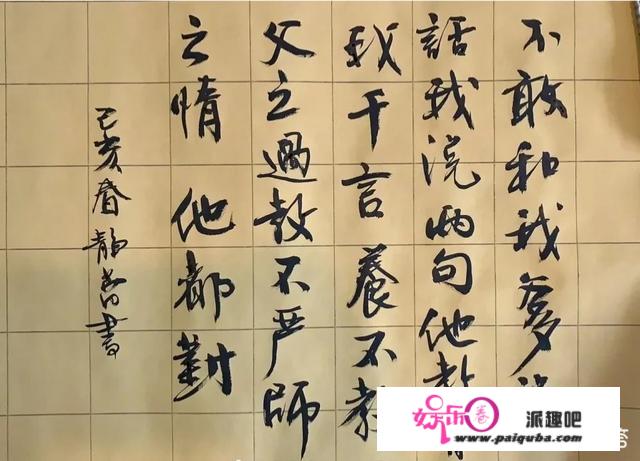 不敢和我爹
話我说兩句他教
我千言養不教
父之過教不严師
之情他都對
己亥春静書
娱乐圈 派趣吧
www.paiquba.com